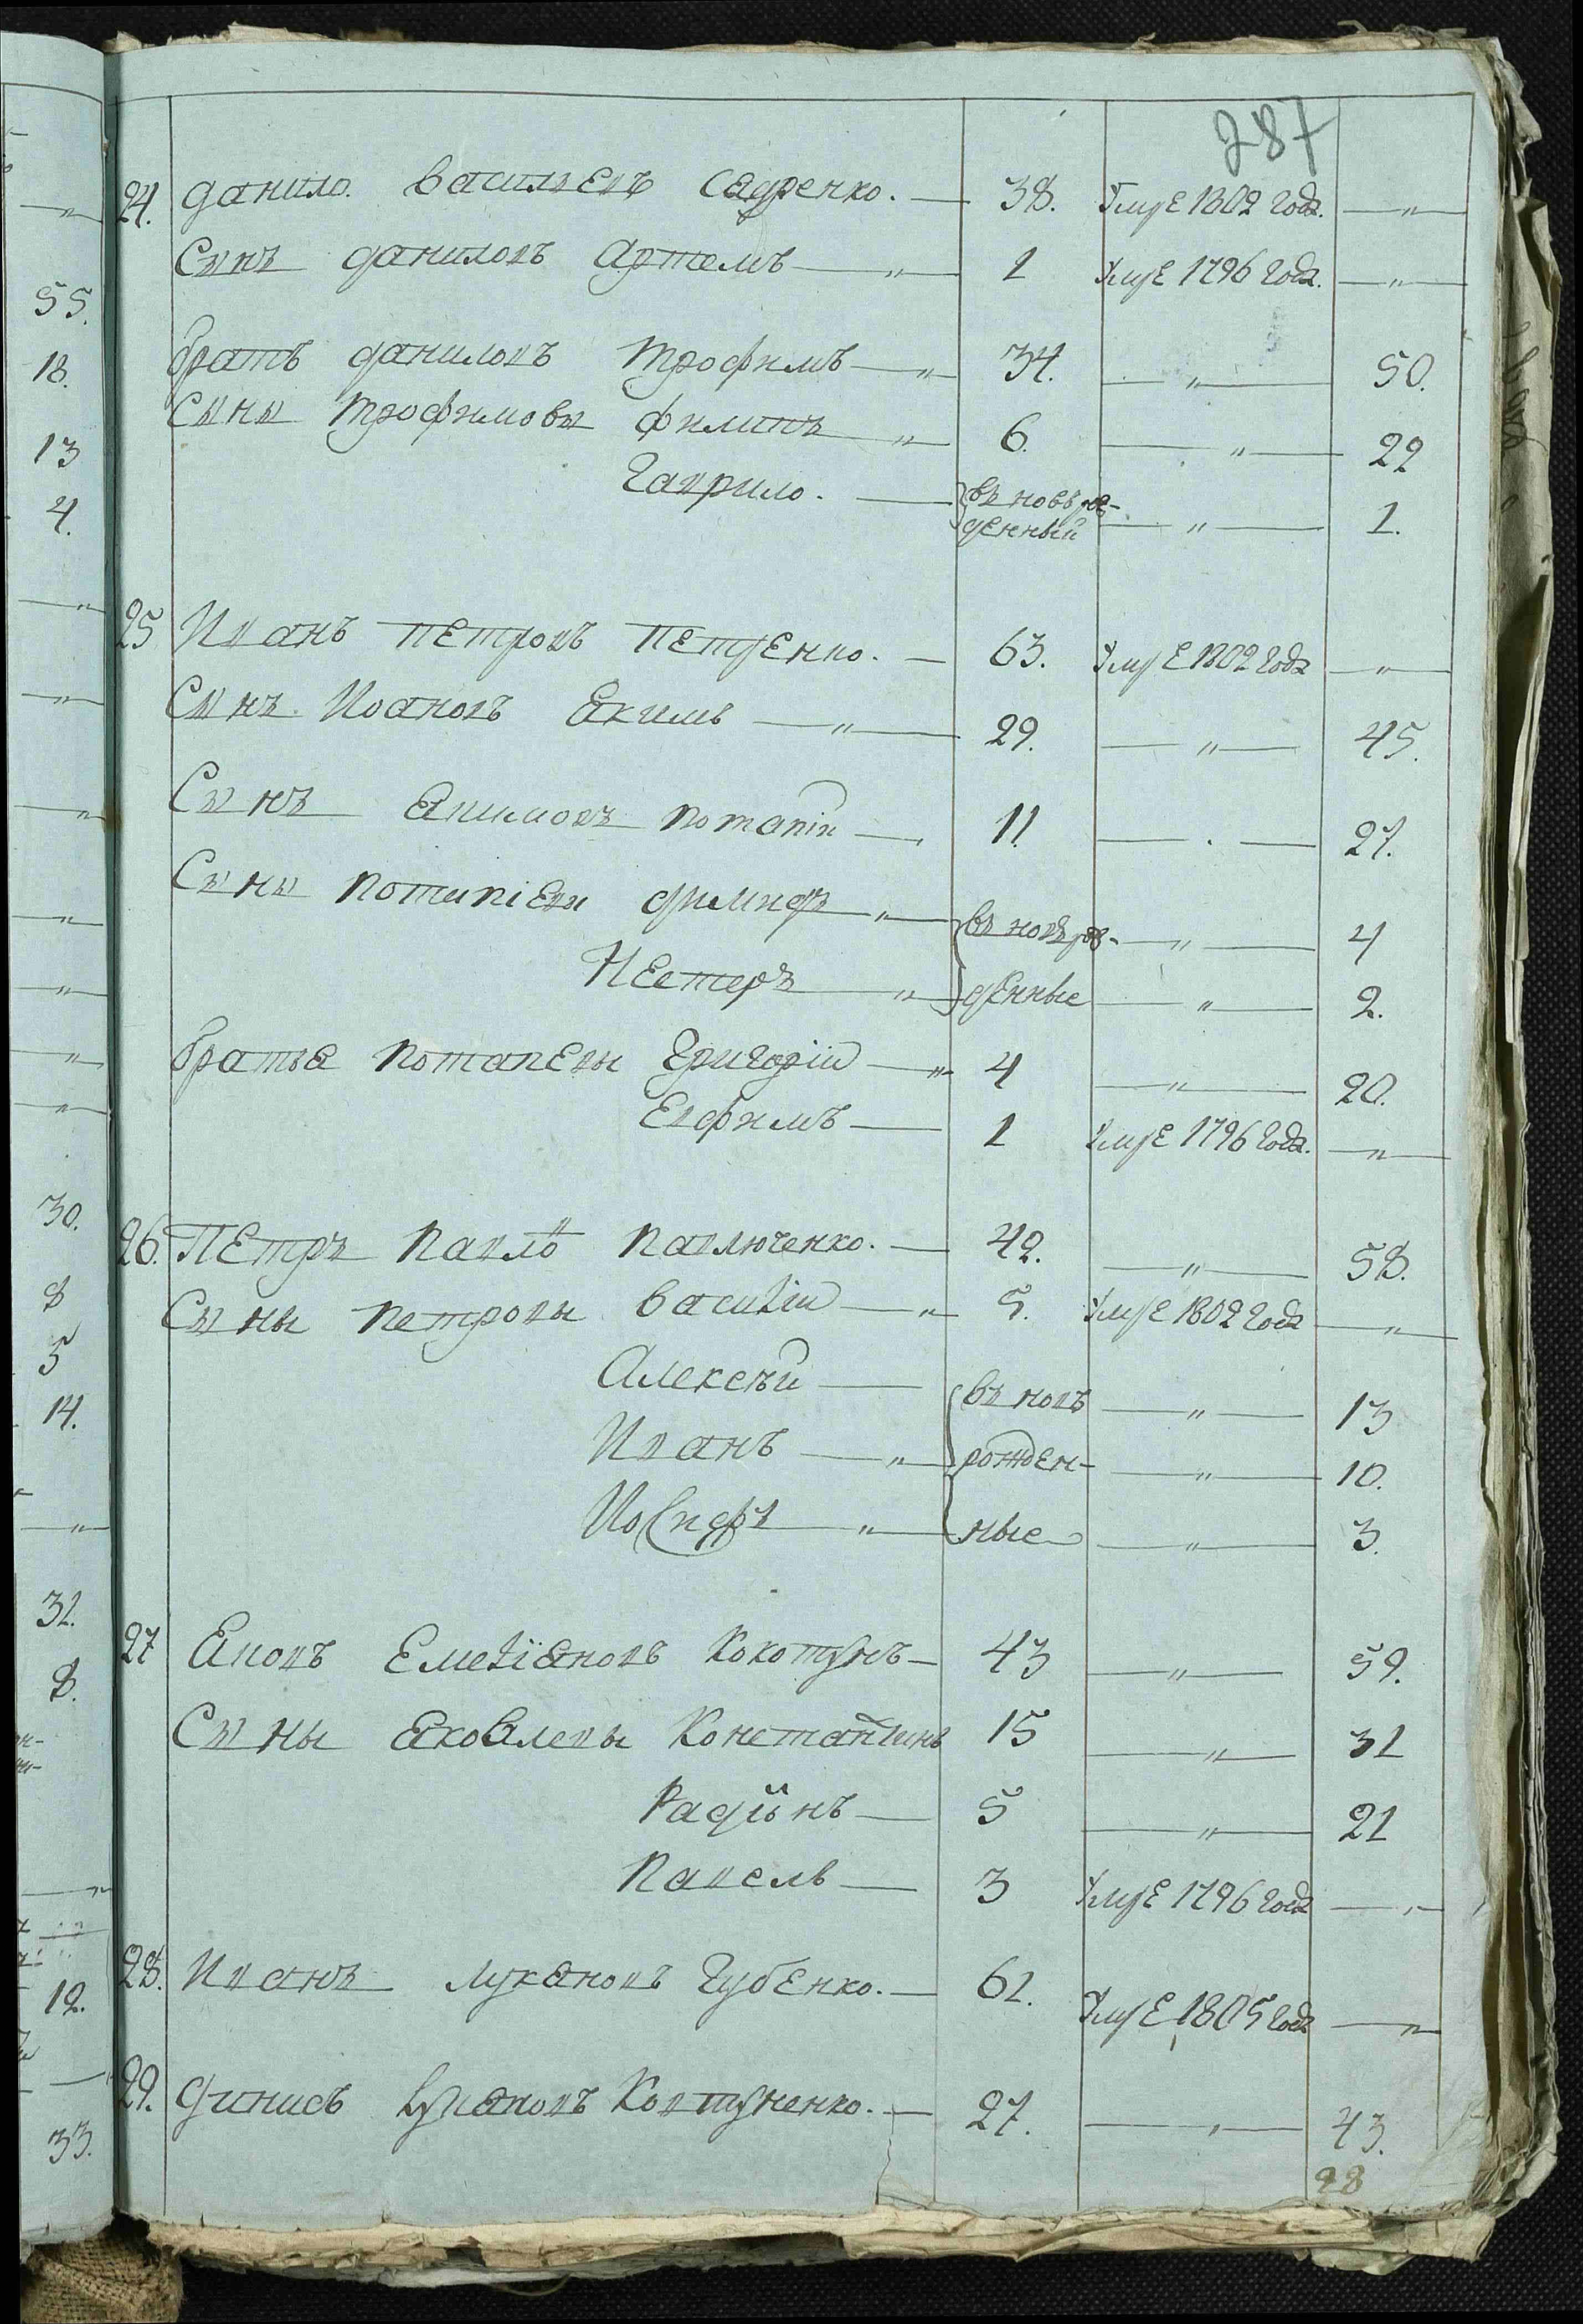 287
24. Данило Васильевъ – 38. Умре 1802 года. – „
Сынъ Даниловъ Артемъ – „ 1 Умре 1796 года. – „
братъ Даниловъ Трофимъ – „ 34. – „ – 50.
Сыны Трофимовы Филипъ – „ 6. – „ – 22
Гаврило. – въ новь рож-
денный – „ – 1.
25 Иванъ Петровъ – 63. Умре 1802 года – „
Сынъ Иоановъ Якимъ – „ 29. – „ – 45.
Сынъ Якимовъ Потапій – 11. – . – 27.
Сыны Потапіевы – „ въ новь рож- – „ – 4
Нестеръ „ денные – „ – 2.
братья Потапевы Григорій – „ 4 – „ – 20.
Евфимъ – 1 Умре 1796 года. – „
26. Петръ Павловъ Павлюченко. – 42. – „ – 58.
Сыны Петровы Василій – „ 5. Умре 1802 года – „
Алексѣй – въ новь – „ – 13
Иванъ – „ рожден- – „ – 10.
Иосифъ „ ные – „ – 3.
27 Яковъ Емеліяновъ Кокотунъ – 43 – „ – 59.
Сыны Яковлевы Константинъ 15 – „ – 31
Радіонъ – 5 – „ – 21
Павелъ – 3 Умре 1796 года – „
28. Иванъ Лукяновъ Губенко. – 61. Умре 1805 года – „
29. Динисъ Ковтуненко. – 27. – „ – 43.
98
55.
18.
13
4.
30.
8
5
14.
31.
8.
12.
33.